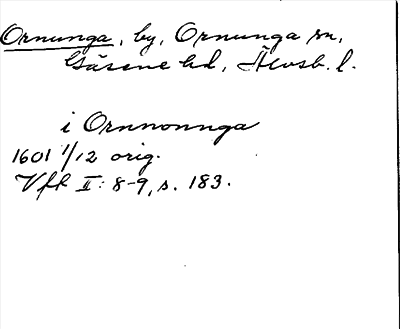 Ornunga, by, Ornunga sn,
Gäsene hd, Älvsb. l.
i Ornnonnga
1601 1/12 orig.
Vft II: 8-9, s. 183.